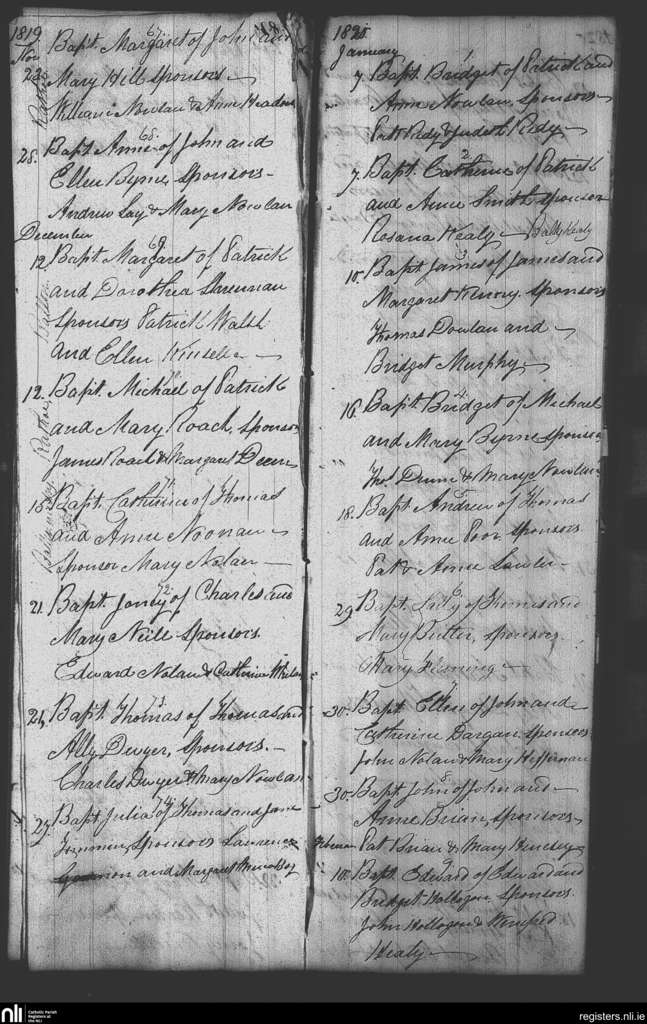 1819
Nov
23 Bapt. Margaret of John and
67
Mary Hill sponsors
William Nowlan & Anne Headon
28. Bapt. Anne of John and
68
Ellen Byrne, sponsors
Andrew Lay & Mary Nowlan
December
12 Bapt Margaret of Patrick
69
and Dorothea
Sponsors Patrick Walsh
and Ellen Kinsela
12. Bapt. Michael of Patrick
70
and Mary Roach, sponsors
James Roach & Margaret
15 Bapt. Catherine of Thomas
71
and Anne Noonan
sponsor Mary Nolan
21. Bapt. of Charles and
72
Mary Neill sponsors
Edward Nolan & Catherine Whelan
Bapt. Thomas of Thomas and
73
Ally Dwyer, sponsors.
Charles Dwyer & Mary Nowlan
Bapt Julia of Thomas and Jane
74
Sponsors Laurence
and Margaret
January
7 Bapt. Bridget of Patrick and
1
Anne Nowlan, sponsors
Patt Redy & Judeth Redy
7. Bapt. Catherine of Patrick
2
and Anne Smith sponsor
Rosana Kealy Ballykealy
10. Bapt James of James and
3
Margaret sponsors
Thomas Dowlan and
Bridget Murphy
16. Bapt. Bridget of Michael
4
and Mary Byrne sponsors
Thos. Dunne & Mary Nowlan
18. Bapt Andrew of Thomas
5
and Anne Poor sponsors
Pat & Anne Lawler
29 Bapt. of Thomas and
6
Mary Butler, sponsors
Mary Fleming
30. Bapt Ellen of John and
7
Catherine Dargan, sponsors
John Nolan & Mary Heffernan
30. Bapt John of John and
8
Anne Brian, sponsors
Pat Brian & Mary
10. Bapt. Edward of Edward and
9
Bridget Hallogan, Sponsors
John Hallogan & Winifred
Healy
nli
Catholic Parish
Registers at
the NLI
registers.nli.ie